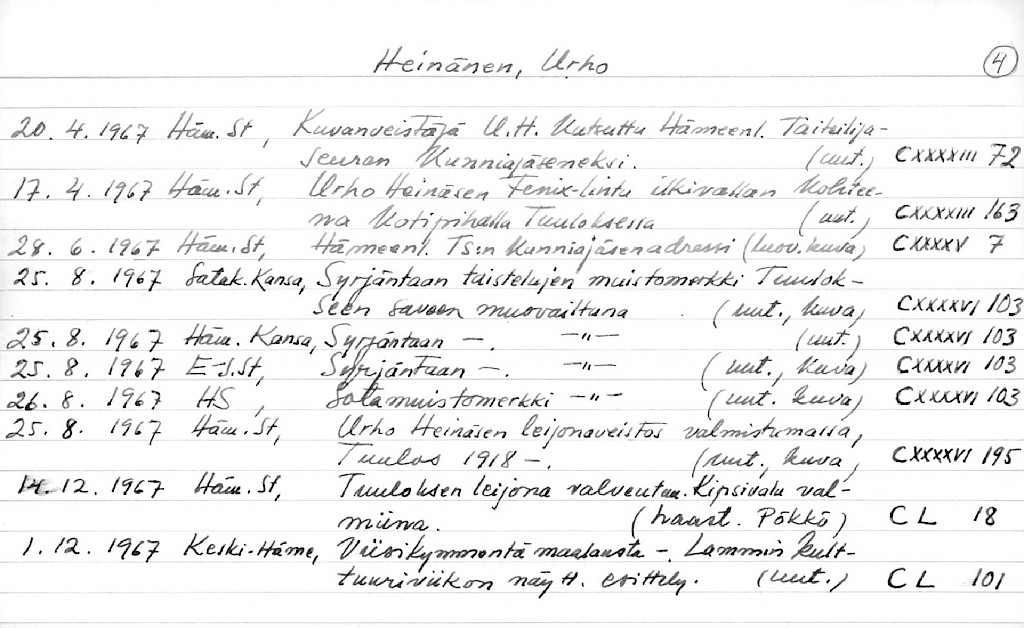 Heinänen, Urho 4
20. 4. 1967 Häm. St, Kuvanveistäjä U.H. Kutsuttu Hämeenl. Taiteilija-
seuran Kunniajäseneksi. (uut.) CXXXXIII 72
17. 4. 1967 Häm. St, Urho Heinäsen Fenix-lintu ilkivallan kohtee-
na kotipihalla Tuuloksessa (uut.) CXXXXIII 163
28. 6. 1967 Häm. St, Hämeenl. TS:n Kunniajäsenadressi (luov. kuva) CXXXXV 7
25. 8. 1967 Satak. Kansa, Syrjäntaan taistelujen muistomerkki Tuulok-
seen saveen muovailtuna (uut., kuva) CXXXXVI 103
25. 8. 1967 Häm. Kansa, Syrjäntaan —. —"— (uut.) CXXXXVI 103
25. 8. 1967 E-S.St, Syrjäntaan —. —"— (uut., kuva) CXXXXVI 103
26. 8. 1967 HS, Sotamuistomerkki —"— (uut. kuva) CXXXXVI 103
25. 8. 1967 Häm. St, Urho Heinäsen leijonaveistos valmistumassa,
Tuulos 1918 —. (uut., kuva, CXXXXVI 195
14. 12. 1967 Häm. St, Tuuloksen leijona Kipsivalu val-
miina. (haast. Pökkö) CL 18
1. 12. 1967 Keski-Häme, Viisikymmentä maalausta —. Lammin kult-
tuuriviikon näytt. esittely. (uut.) CL 101